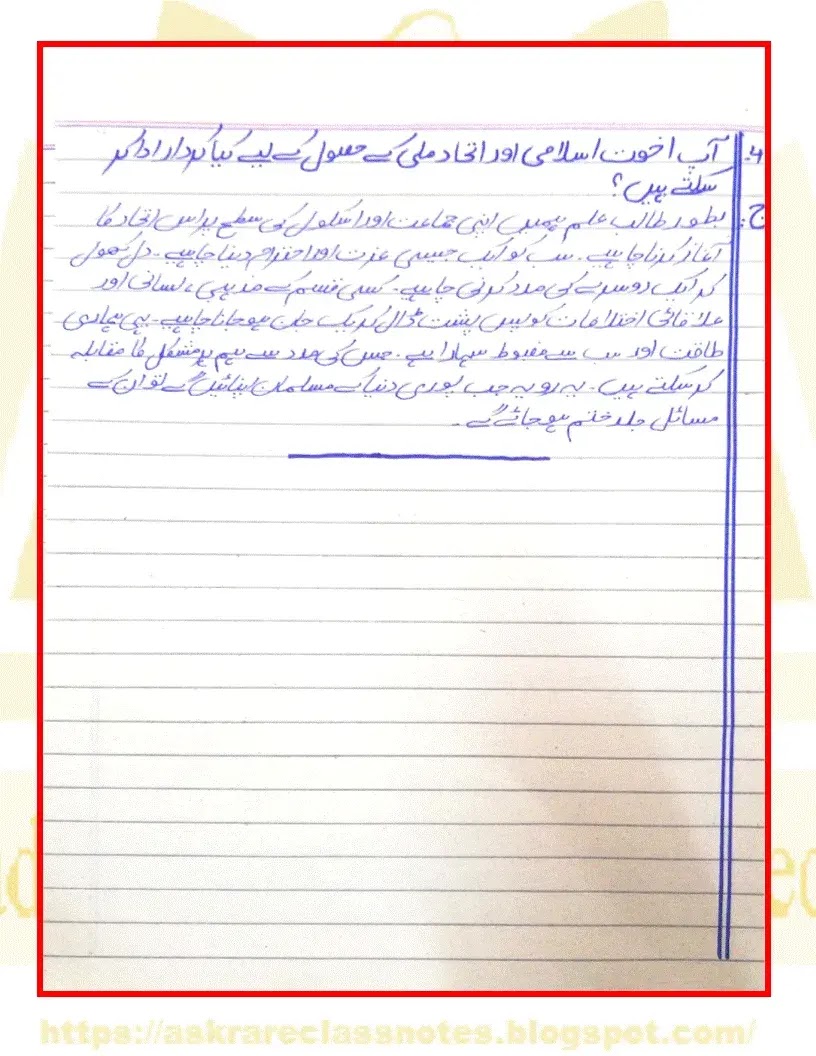 ۴. آپ اخوت اسلامی اور اتحاد ملی کے حصول کے لیے کیا کردار ادا کر
سکتے ہیں؟
ج: بطور طالب علم ہمیں اپنی جماعت اور اسکول کی سطح پر اس اتحاد کا
آغاز کرنا چاہیے۔ سب کو ایک جیسی عزت اور احترام دینا چاہیے۔ دل کھول
کر ایک دوسرے کی مدد کرنی چاہیے۔ کسی قسم کے مذہبی، لسانی اور
علاقائی اختلافات کو پس پشت ڈال کر یک جان ہو جانا چاہیے۔ یہی ہماری
طاقت اور سب سے مضبوط سہارا ہے۔ جس کی مدد سے ہم ہر مشکل کا مقابلہ
کر سکتے ہیں۔ یہ رویہ جب پوری دنیا کے مسلمان اپنائیں گے تو ان کے
مسائل جلد ختم ہو جائے گے۔
https://askrareclassnotes.blogspot.com/